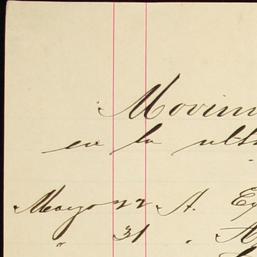 Movim
en la ult
Mayo 22 A. E
" 31 "